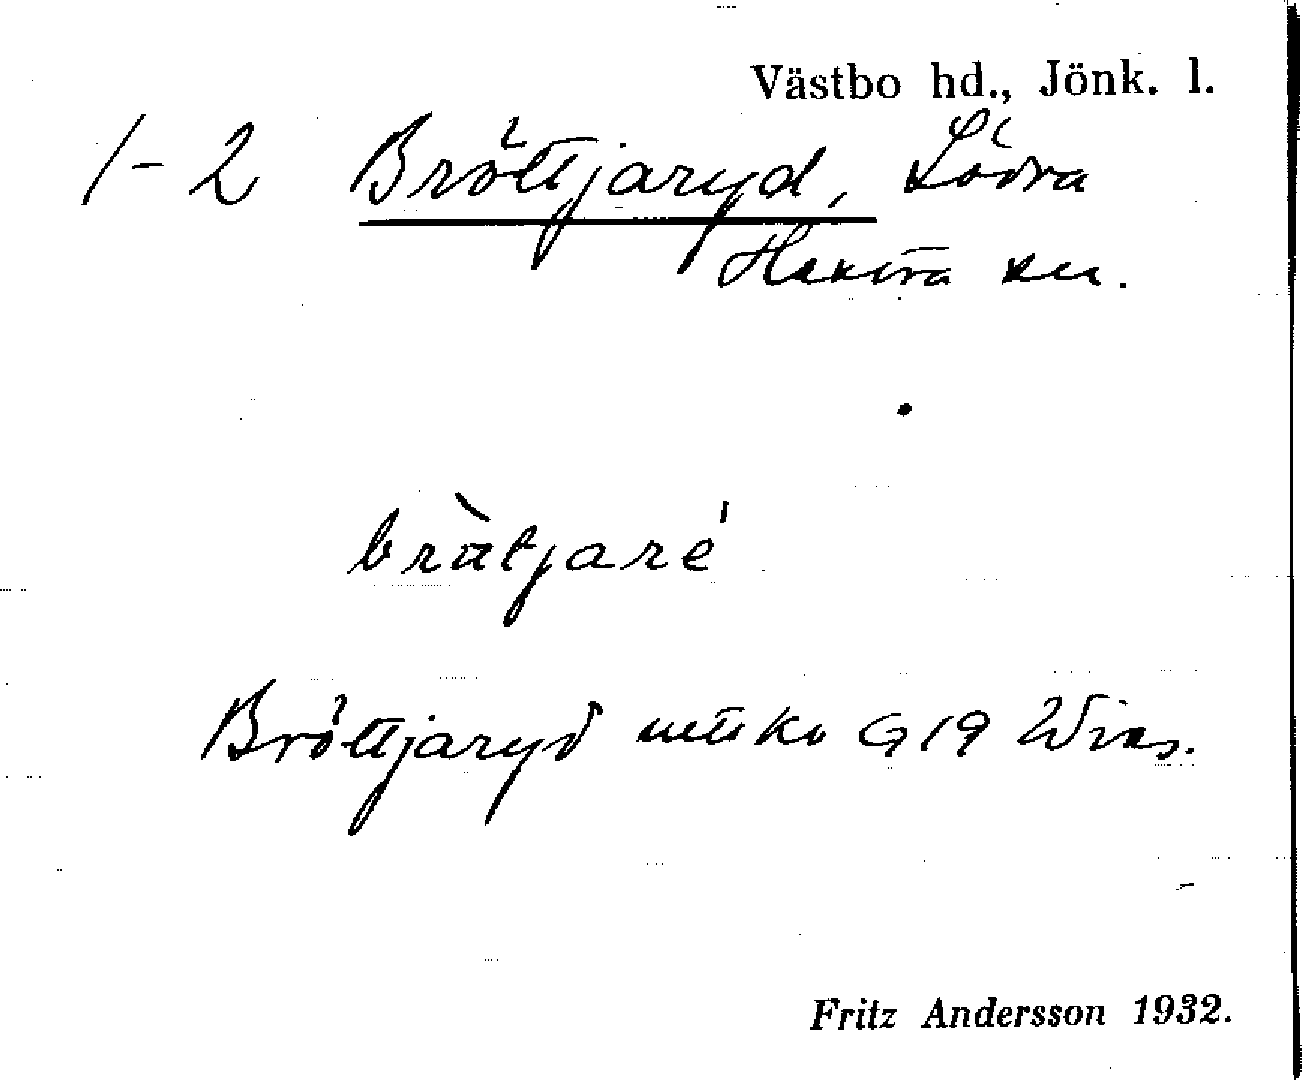 Västbo hd., Jönk. l.
1-2 Bröttjaryd, Södra
Hestra sn.
brätjaré
Bröttjaryd G 19
Fritz Andersson 1932.